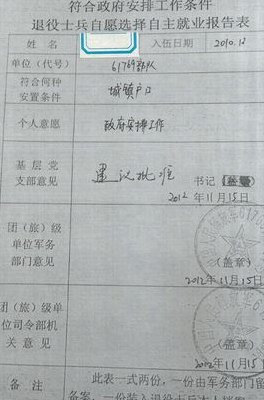 符合政府安排工作条件
退役士兵自愿选择自主就业报告表
姓名 入伍日期 2010.12
单位（代号） 61769部队
符合何种
安置条件 城镇户口
个人意愿 政府安排工作
基层党
支部意见 建议批准 书记
2012年11月15日
团（旅）级
单位军务
部门意见
（盖章）
2012年11月15日
团（旅）级单
位司令部机
关意见
（盖章）
2012年11月15
备注 此表一式两份，一份由军务部门留